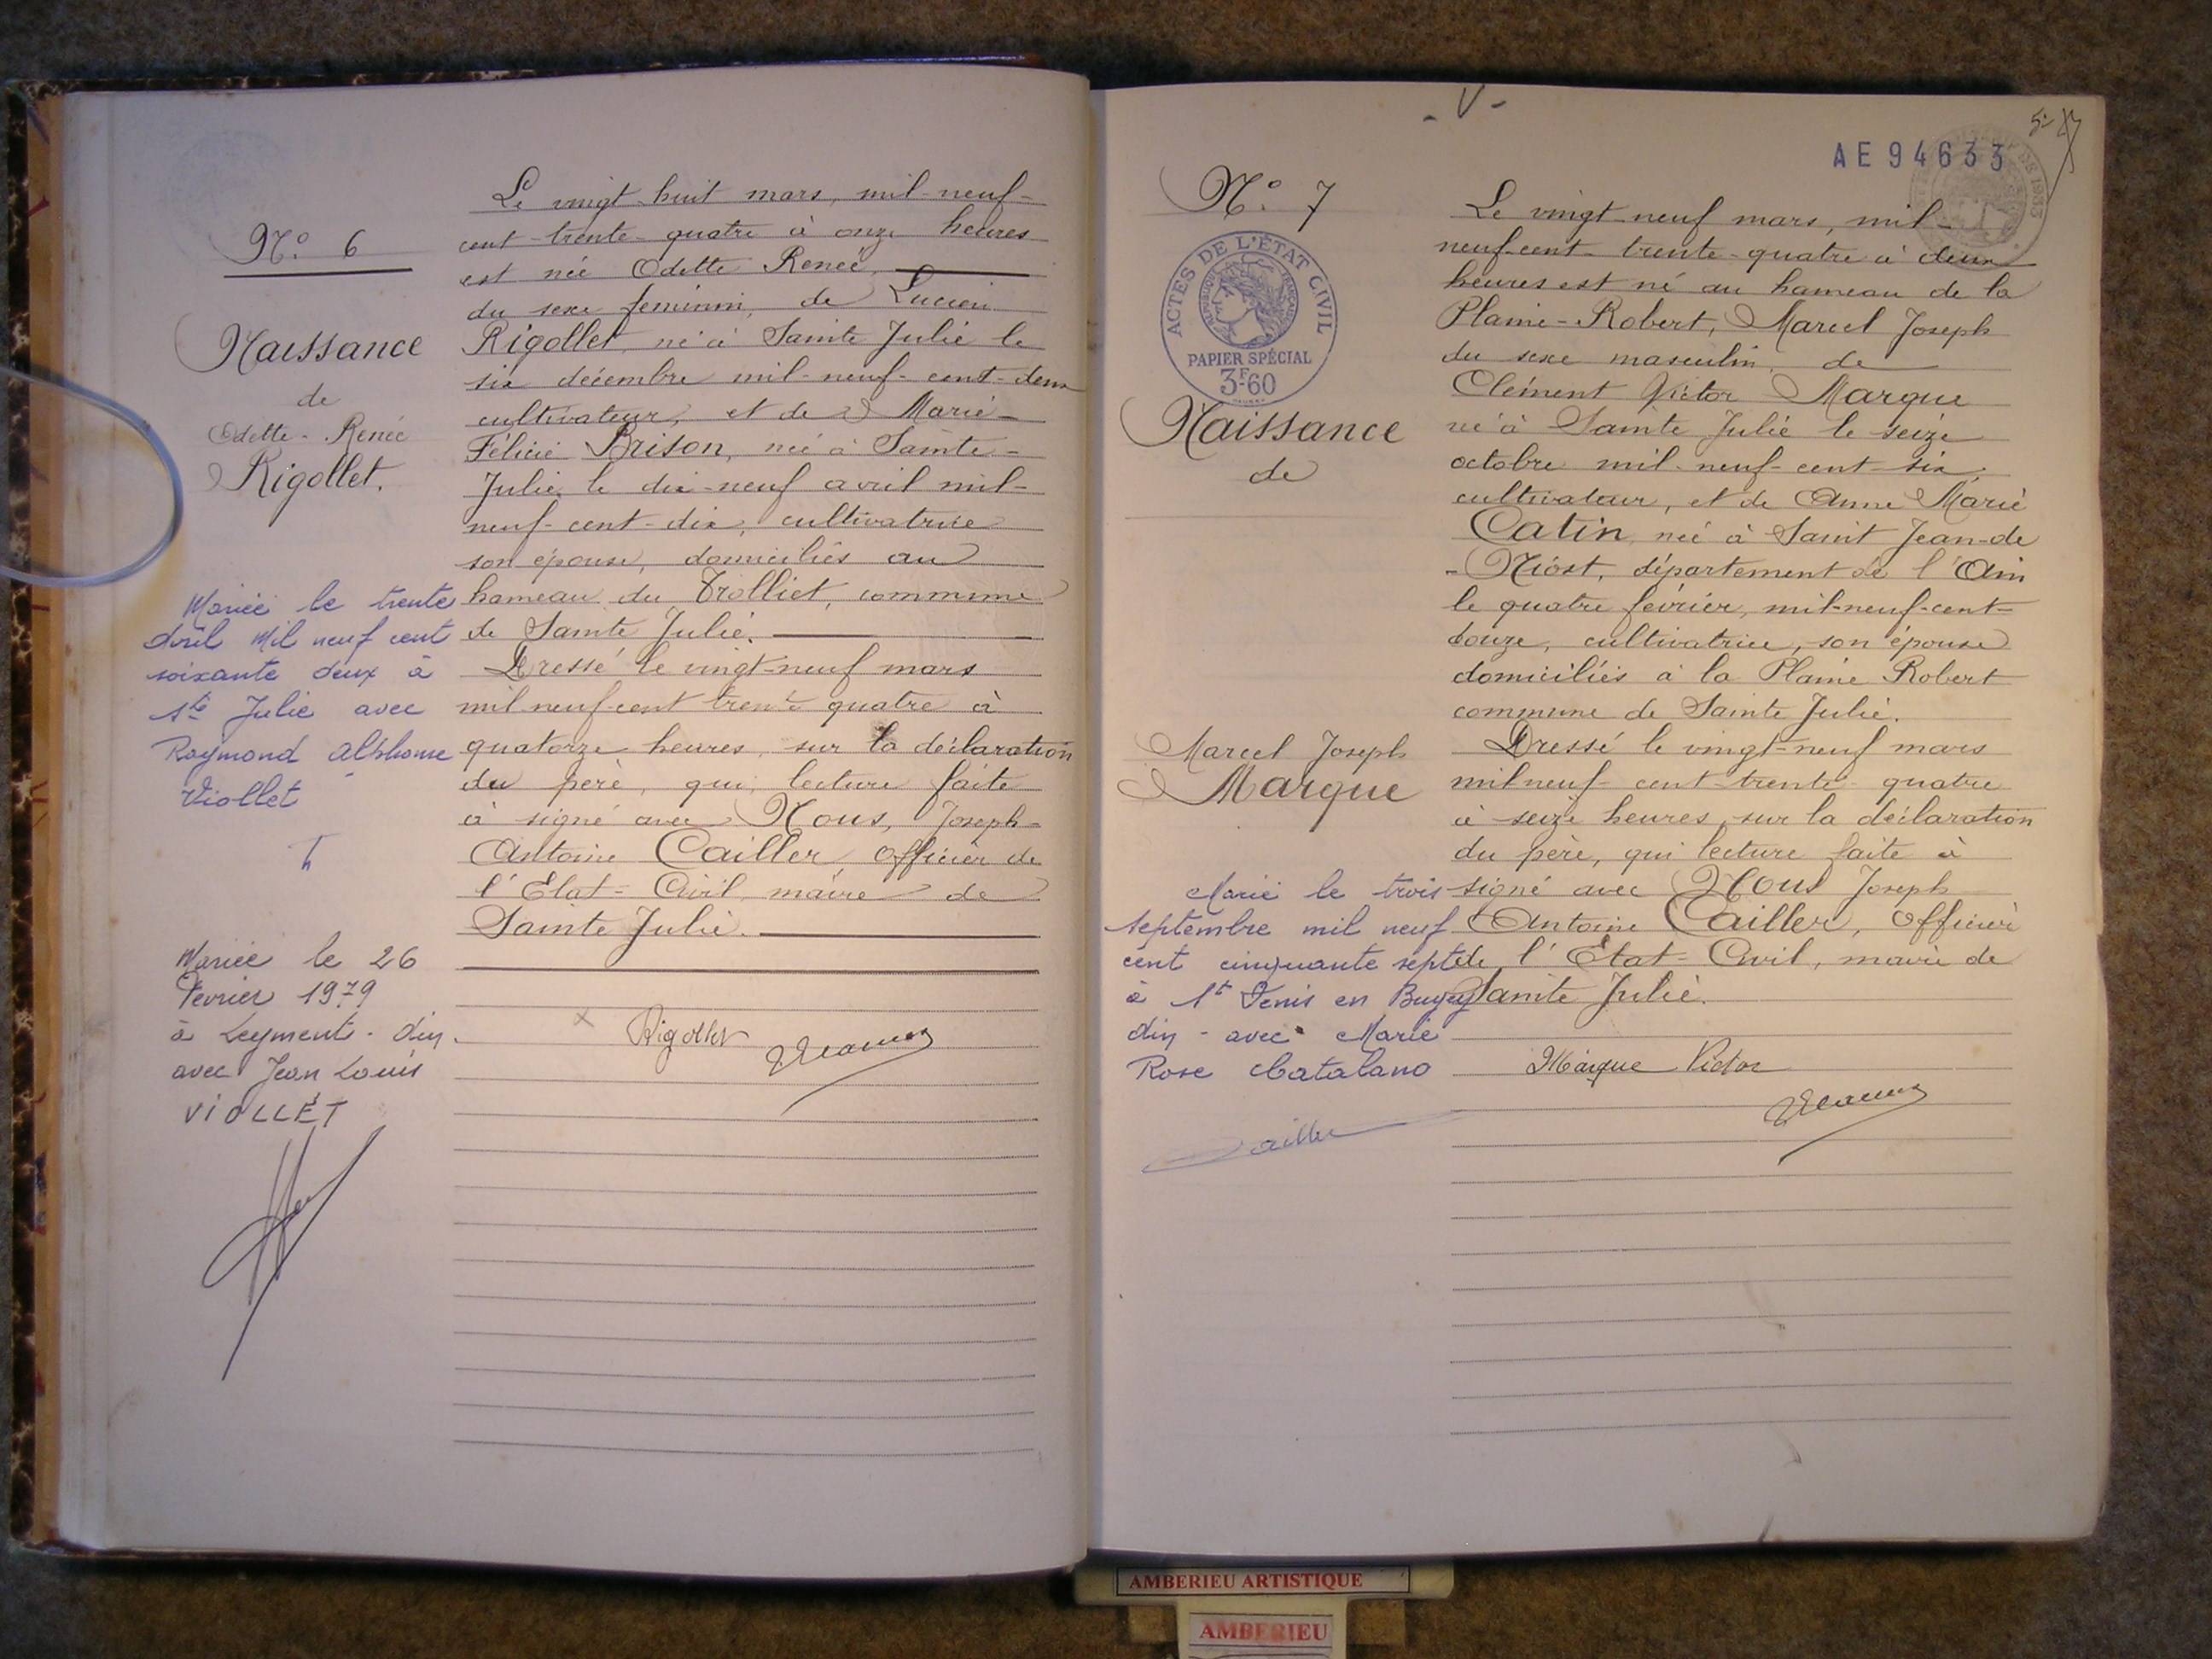 N° 6
Naissance
de
Odette-Renée
Rigollet.
Mariée le trente
Avril Mil neuf cent
soixante deux à
Ste Julie avec
Raymond Alphonse
Viollet
Mariée le 26
Février 1979
à Leyment - Ain.
avec Jean Louis
VIOLLET
Le vingt-huit mars, mil-neuf-
cent-trente-quatre à onze heures
est née Odette Renée,
du sexe féminin, de Lucien
Rigollet, né à Sainte Julie le
six décembre mil-neuf-cent-deux
cultivateur, et de Marie-
Félicie Brison, née à Sainte-
Julie, le dix-neuf avril mil-
neuf-cent-dix, cultivatrice
son épouse, domiciliés au
hameau du Trolliet, commune
de Sainte Julie.
Dressé le vingt-neuf mars
mil-neuf-cent trente quatre à
quatorze heures, sur la déclaration
du père, qui, lecture faite
à signé avec Nous, Joseph-
Antoine Cailler, Officier de
l'Etat-Civil, maire de
Sainte Julie.
Rigollet
- V -
5
AE94633
N° 7
ACTES DE L'ÉTAT CIVIL
RÉPUBLIQUE FRANÇAISE
PAPIER SPÉCIAL
3F.60
Naissance
de
Marcel Joseph
Marque
Marié le trois
septembre mil neuf
cent cinquante sept
à St Denis en Bugey
Ain - avec Marie
Rose Catalano
Cailler
Le vingt-neuf mars, mil-
neuf-cent-trente-quatre à deux
heures est né au hameau de la
Plaine-Robert, Marcel Joseph
du sexe masculin, de
Clément Victor Marque
né à Sainte Julie le seize
octobre mil-neuf-cent-six,
cultivateur, et de Anne Marie
Catin, née à Saint Jean-de
-Niost, département de l'Ain
le quatre février, mil-neuf-cent-
douze, cultivatrice, son épouse
domiciliés à la Plaine Robert
commune de Sainte Julie.
Dressé le vingt-neuf mars
mil neuf-cent-trente-quatre
à seize heures, sur la déclaration
du père, qui lecture faite à
signé avec Nous Joseph
Antoine Cailler, Officier
de l'Etat-Civil, maire de
Sainte Julie.
Marque Victor
AMBERIEU ARTISTIQUE
AMBERIEU